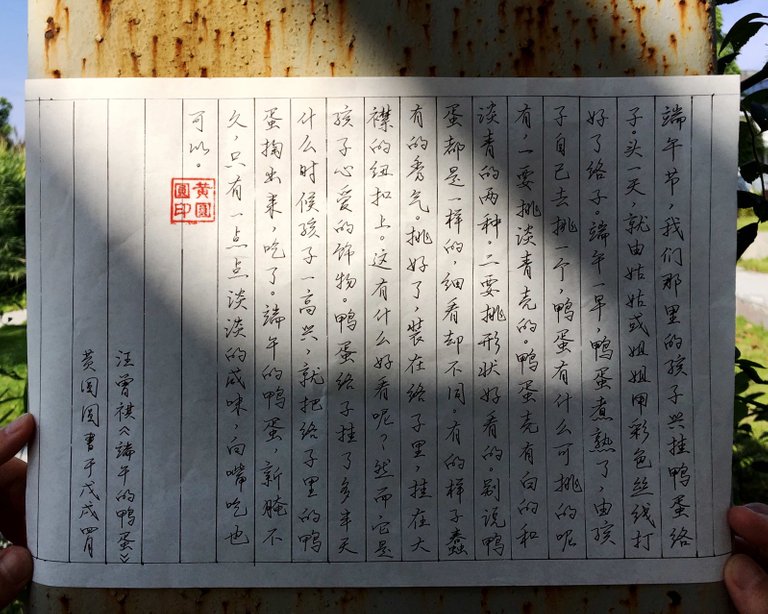 端午节，我们那里的孩子兴挂鸭蛋络
子。头一天，就由姑姑或姐姐用彩色丝线打
好了络子。端午一早，鸭蛋煮熟了，由孩
子自己去挑一个，鸭蛋有什么可挑的呢
有，一要挑淡青壳的。鸭蛋壳有白的和
淡青的两种。二要挑形状好看的。别说鸭
蛋都是一样的，细看却不同。有的样子蠢
有的秀气。挑好了，装在络子里，挂在大
襟的纽扣上。这有什么好看呢？然而，它是
孩子心爱的饰物。鸭蛋络子挂了多半天
什么时候孩子一高兴，就把络子里的鸭
蛋掏出来，吃了。端午的鸭蛋，新腌不
久，只有一点点淡淡的咸味，白嘴吃也
可以。
黄圓
圓印
汪曾祺《端午的鸭蛋》
黄圆圆書于戊戌四月